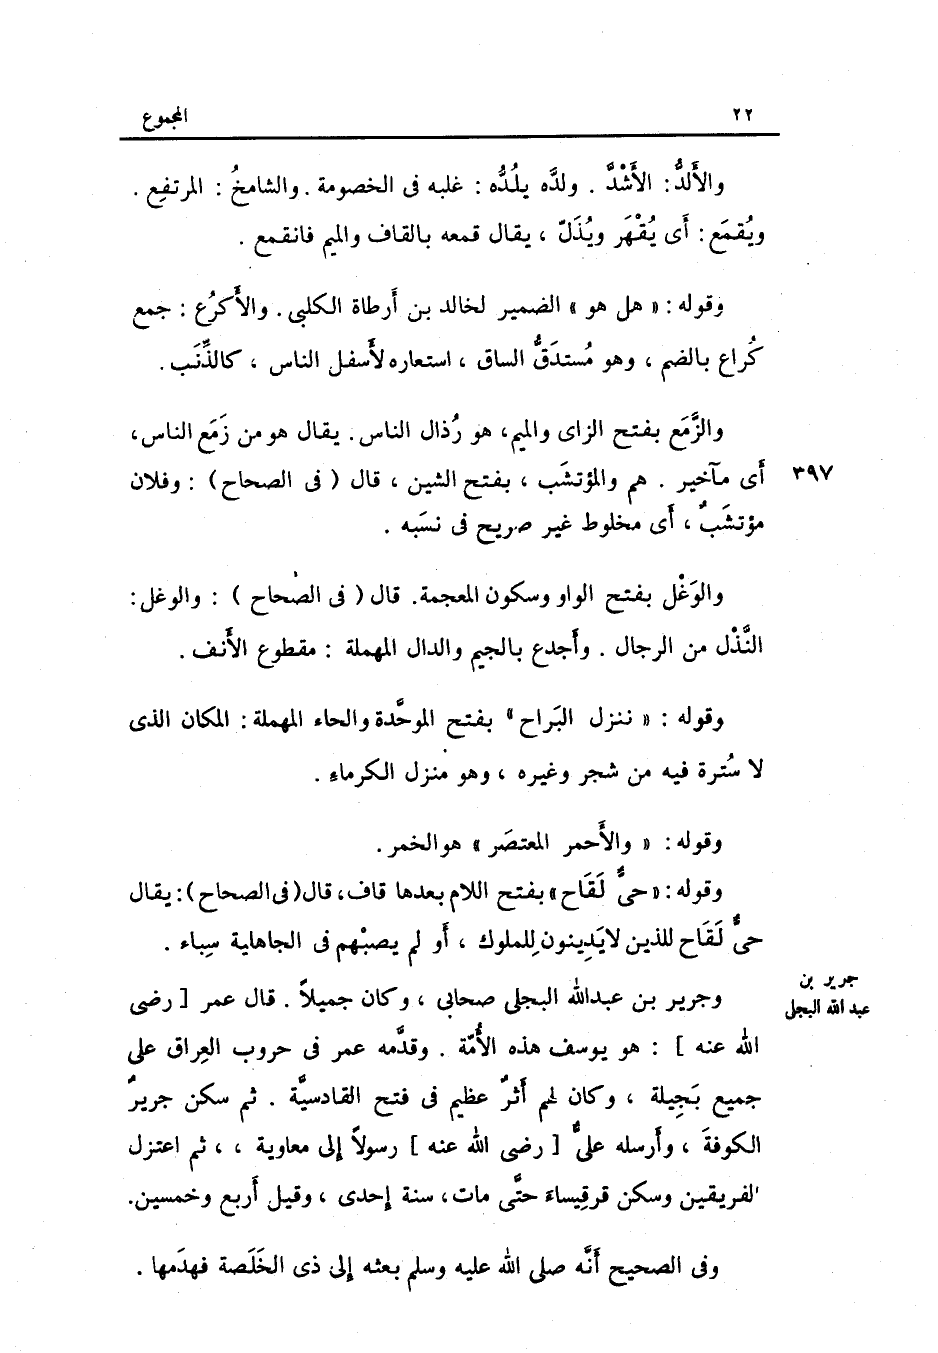 ٢٢ المجموع
والأَلدُّ: الأَشْدَّ . ولدَّه يلُدُّه : غلبه فى الخصومة . والشامخُ : المرتفِع .
ويُقمَع : أَى يُقْهَر ويُذَلّ ، يقال قمعه بالقاف والميم فانقمع .
وقوله : « هل هو » الضمير لخالد بن أَرطاة الكلبى . والأَكرُع : جمع
كُراع بالضم ، وهو مُستدَقُّ الساق ، استعاره لأَسفل الناس ، كالذَّنَب .
والزَّمَع بفتح الزاى والميم، هو رُذال الناس . يقال هو من زَمَع الناس،
أَى مآخير . هم والمؤتشَب ، بفتح الشين ، قال ( فى الصحاح ) : وفلان
٣٩٧
مؤتشَبٌ ، أَى مخلوط غير صريح فى نسَبه .
والوَغْل بفتح الواو وسكون المعجمة. قال ( فى الصحاح ) : والوغل :
النَّذْل من الرجال . وأَجدع بالجيم والدال المهملة : مقطوع الأَنف .
وقوله : « ننزل البَراح » بفتح الموحَّدة والحاء المهملة : المكان الذى
لا سُترة فيه من شجر وغيره ، وهو منزل الكرماء .
وقوله : « والأَحمر المعتصَر » هو الخمر .
وقوله : « حىٌّ لَقَاح » بفتح اللام بعدها قاف، قال ( فى الصحاح ) : يقال
حىٌّ لَقَاح للذين لا يَدِينون لِلملوك ، أَو لم يصبْهم فى الجاهلية سِباء .
جرير بن
عبد الله البجلى
وجرير بن عبدالله البجلى صحابى ، وكان جميلاً . قال عمر [ رضى
الله عنه ] : هو يوسف هذه الأُمّة . وقدَّمه عمر فى حروب العِراق على
جميع بَجِيلة ، وكان لهم أَثرٌ عظيم فى فتح القادسيَّة . ثم سكن جريرٌ
الكوفةَ ، وأَرسله علىٌّ [ رضى الله عنه ] رسولاً إلى معاوية ، ، ثم اعتزل
الفريقين وسكن قرقِيساءَ حتَّى مات، سنة إحدى ، وقيل أَربع وخمسين.
وفى الصحيح أَنَّه صلى الله عليه وسلم بعثه إلى ذى الخَلَصة فهدَمها .